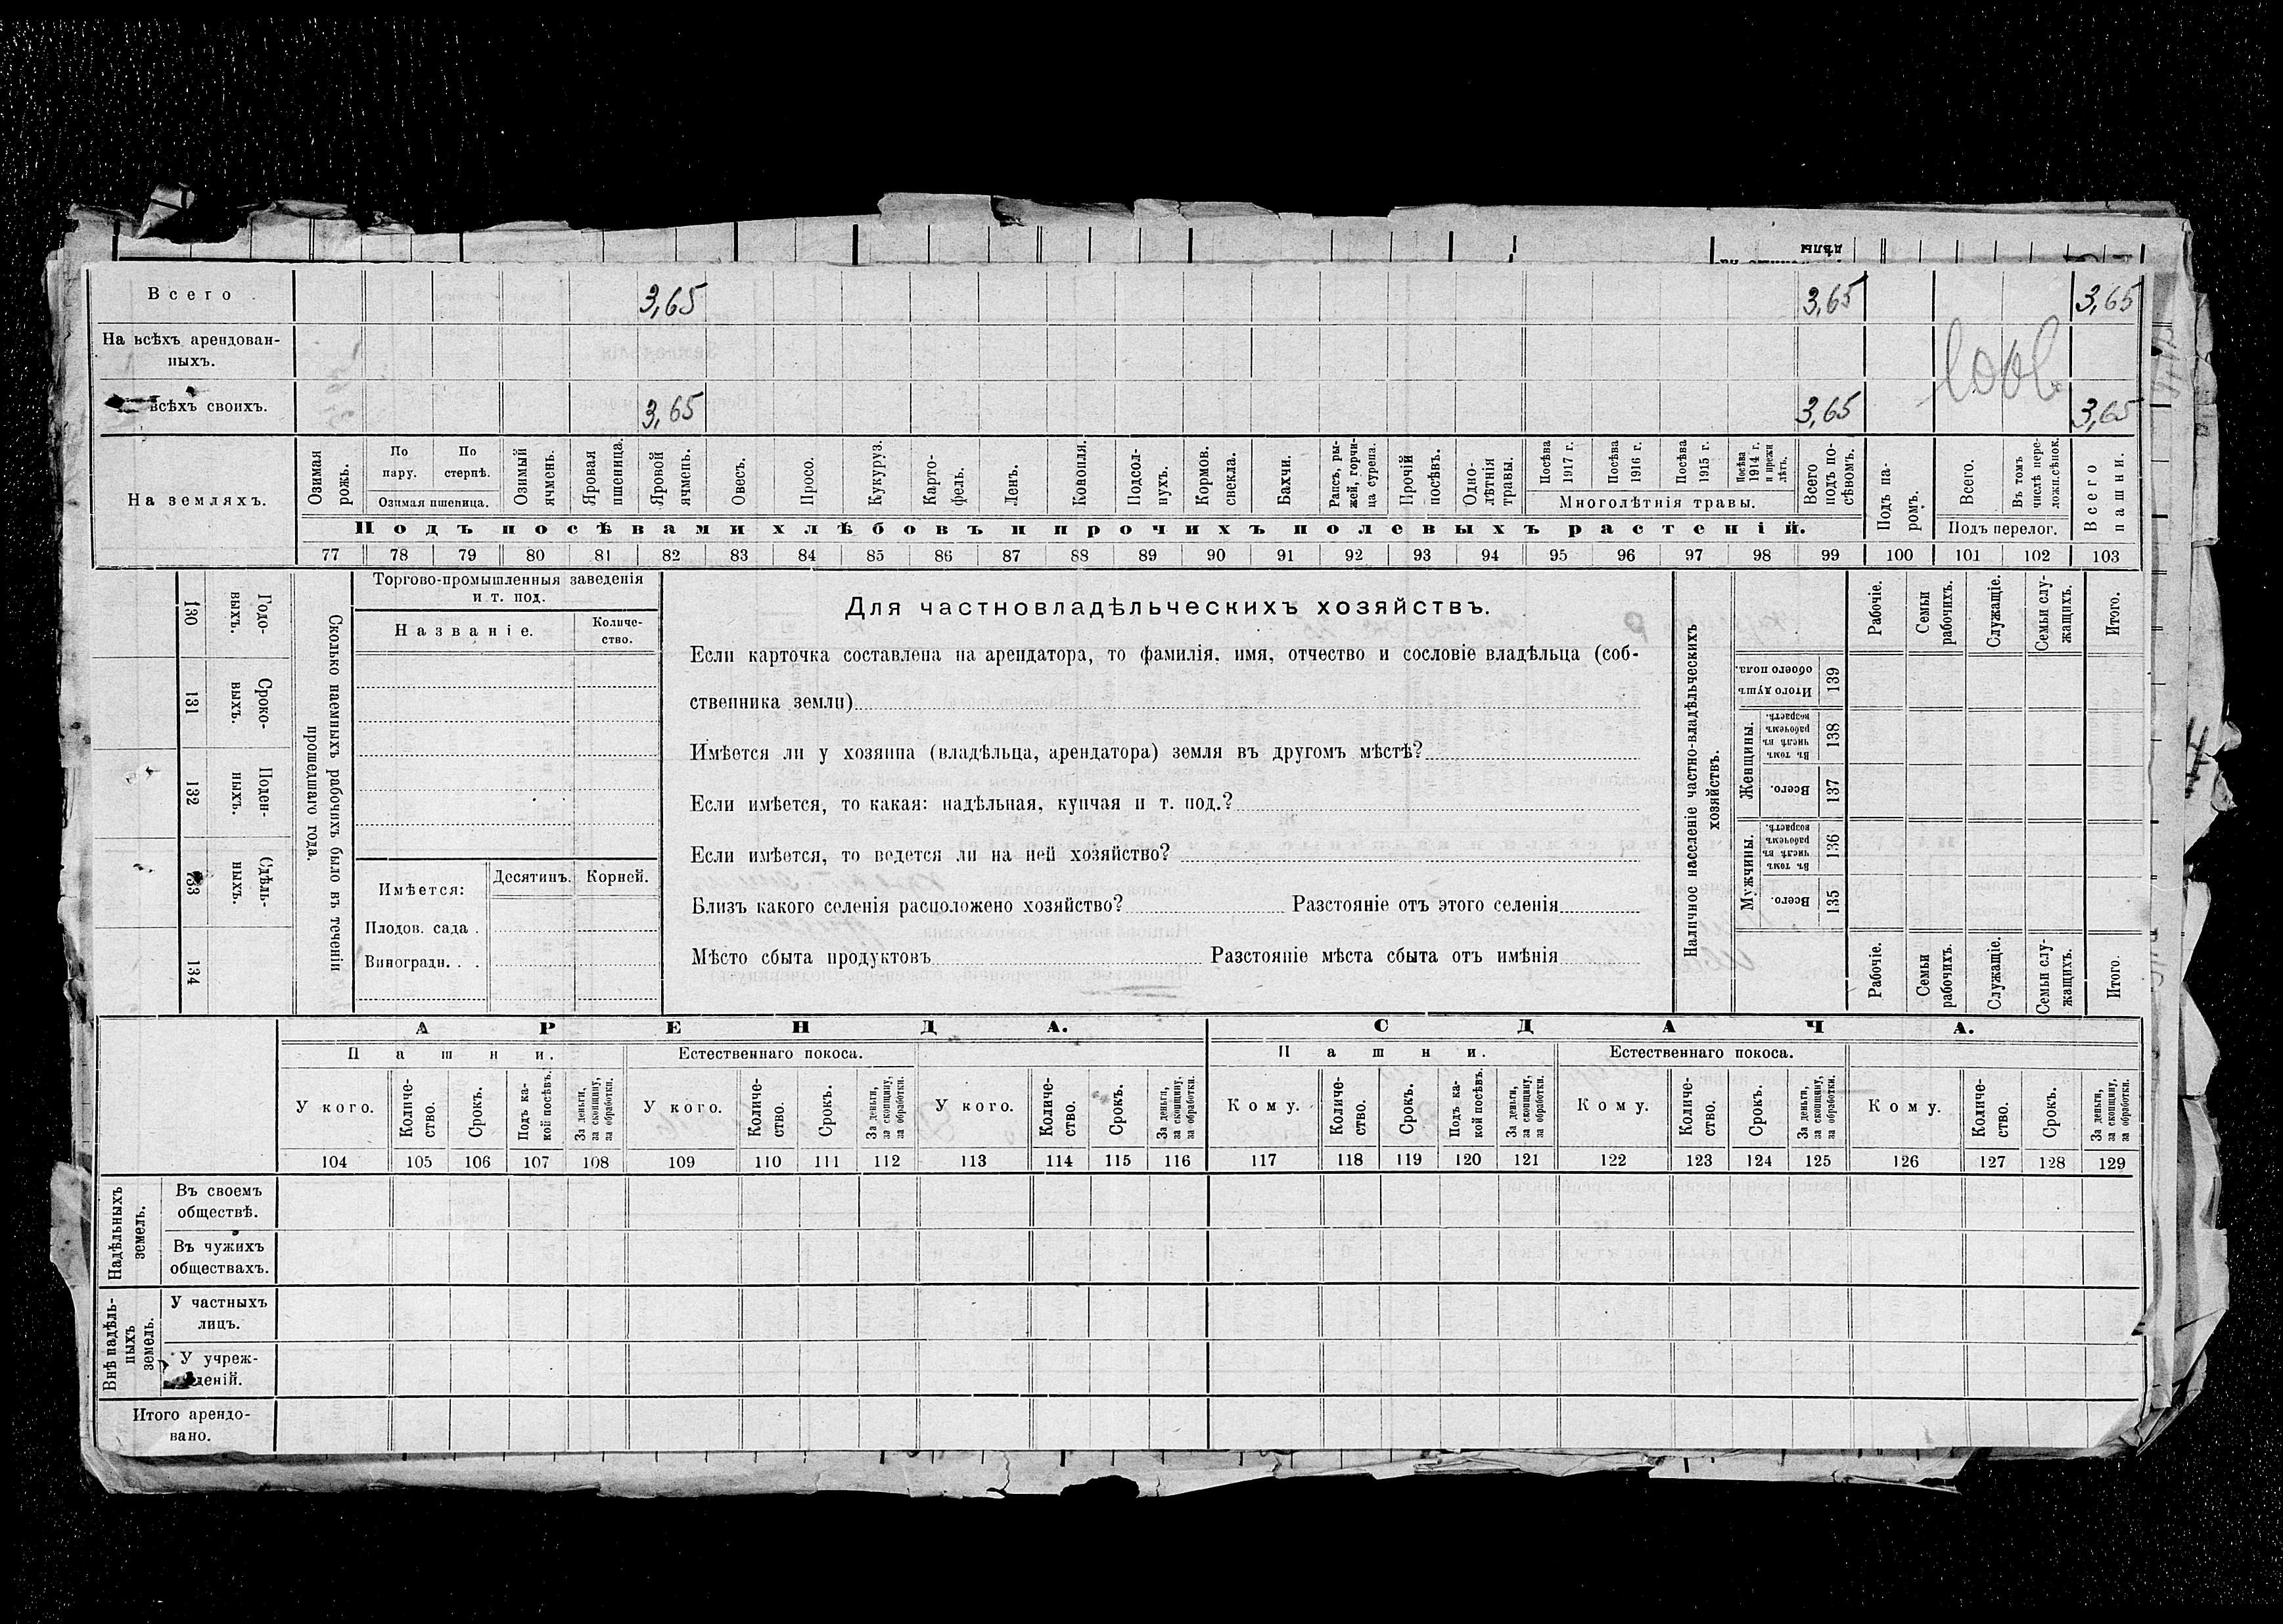 Всего 3,65 3,65 3,65
На всѣхъ арендован-
ныхъ.
всѣхъ своихъ. 3,65 3,65 3,65
На земляхъ.
Озимая рожь.
По пару.
По стернѣ.
Озимая пшеница.
Озимый ячмень.
Яровая пшеница.
Яровой ячмень.
Овесъ.
Просо.
Кукуруз.
Карто-
фель.
Ленъ.
Конопля.
Подсол-
нухъ.
Кормов. свекла.
Бахчи.
Рапсъ, ры-
жей, горчи-
ца сурепа.
Прочій посѣвъ.
Одно-
лѣтнія
травы.
Посѣва 1917 г.
Посѣва 1916 г.
Посѣва 1915 г.
Посѣва 1914 г. и прежн лѣтъ.
Многолѣтнія травы.
Всего подъ по-
сѣвомъ.
Подъ па-
ромъ.
Всего.
Въ томъ числѣ пере-
ложн.сѣнок.
Подъ перелог.
Всего пашни.
Подъ посѣвами хлѣбовъ и прочихъ полевыхъ растеній.
77 78 79 80 81 82 83 84 85 86 87 88 89 90 91 92 93 94 95 96 97 98 99 100 101 102 103
130 Годо-
выхъ.
131 Сроко-
ныхъ.
132 Поден-
ныхъ.
133 Сдѣль-
ныхъ.
134
Сколько наемныхъ рабочихъ было въ теченіи
прошедшаго года.
Торгово-промышленныя заведенія
и т. под.
Названіе.
Количе-
ство.
Имѣется:
Десятинъ. Корней.
Плодов. сада .
Виноградн. . .
Для частновладѣльческихъ хозяйствъ.
Если карточка составлена на арендатора, то фамилія, имя, отчество и сословіе владѣльца (соб-
ственника земли)
Имѣется ли у хозяина (владѣльца, арендатора) земля въ другомъ мѣстѣ?
Если имѣется, то какая: надѣльная, купчая и т. под.?
Если имѣется, то ведется ли на ней хозяйство?
Близъ какого селенія расположено хозяйство? Разстояніе отъ этого селенія
Мѣсто сбыта продуктовъ Разстояніе мѣста сбыта отъ имѣнія
Наличное населеніе частно-владѣльческихъ
хозяйствъ.
Итого душъ
обоего пола.
139
Женщины.
Въ томъ числѣ въ рабочемъ возрастѣ.
138
Всего.
137
Мужчины.
Въ томъ числѣ въ рабочемъ возрастѣ.
136
Всего.
135
Рабочіе.
Семьи рабочихъ.
Служащіе.
Семьи слу-
жащихъ.
Итого.
Рабочіе.
Семьи рабочихъ.
Служащіе.
Семьи слу-
жащихъ.
Итого.
АРЕНДА. СДАЧА.
Пашни. Естественнаго покоса. Пашни. Естественнаго покоса.
У кого.
Количе-
ство.
Срокъ.
Подъ ка-
кой посѣвъ.
За деньги,
за скопщину,
за обработки.
У кого.
Количе-
ство.
Срокъ.
За деньги,
за скопщину,
за обработки.
У кого.
Количе-
ство.
Срокъ.
За деньги,
за скопщину,
за обработки.
Кому.
Количе-
ство.
Срокъ.
Подъ ка-
кой посѣвъ.
За деньги,
за скопщину,
за обработки.
Кому.
Количе-
ство.
Срокъ.
За деньги,
за скопщину,
за обработки.
Кому.
Количе-
ство.
Срокъ.
За деньги,
за скопщину,
за обработки.
104 105 106 107 108 109 110 111 112 113 114 115 116 117 118 119 120 121 122 123 124 125 126 127 128 129
Надѣльныхъ
земель.
Въ своемъ
обществѣ.
Въ чужихъ
обществахъ.
Внѣ надѣль-
ныхъ
земель.
У частныхъ
лицъ.
У учреж-
деній.
Итого арендо-
вано.